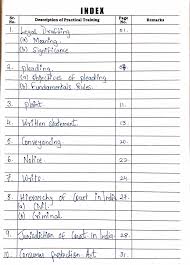 INDEX
Sr. No. Description of Practical Training Page No. Remarks
1. Legal Drafting 01.
(a) Meaning
(b) Significance
2. pleading.
(a) objectives of pleading
(b) Fundamentals Rules.
3. plaint. 11.
4. Written statement 13.
5. Conveyancing 20.
6. Notice 22.
7. Writs. 24.
8. Hierarchy of Court in India 27.
(a) Civil
(b) Criminal
9. Jurisdiction of Court in India 28.
10. Consumer Protection Act 31.